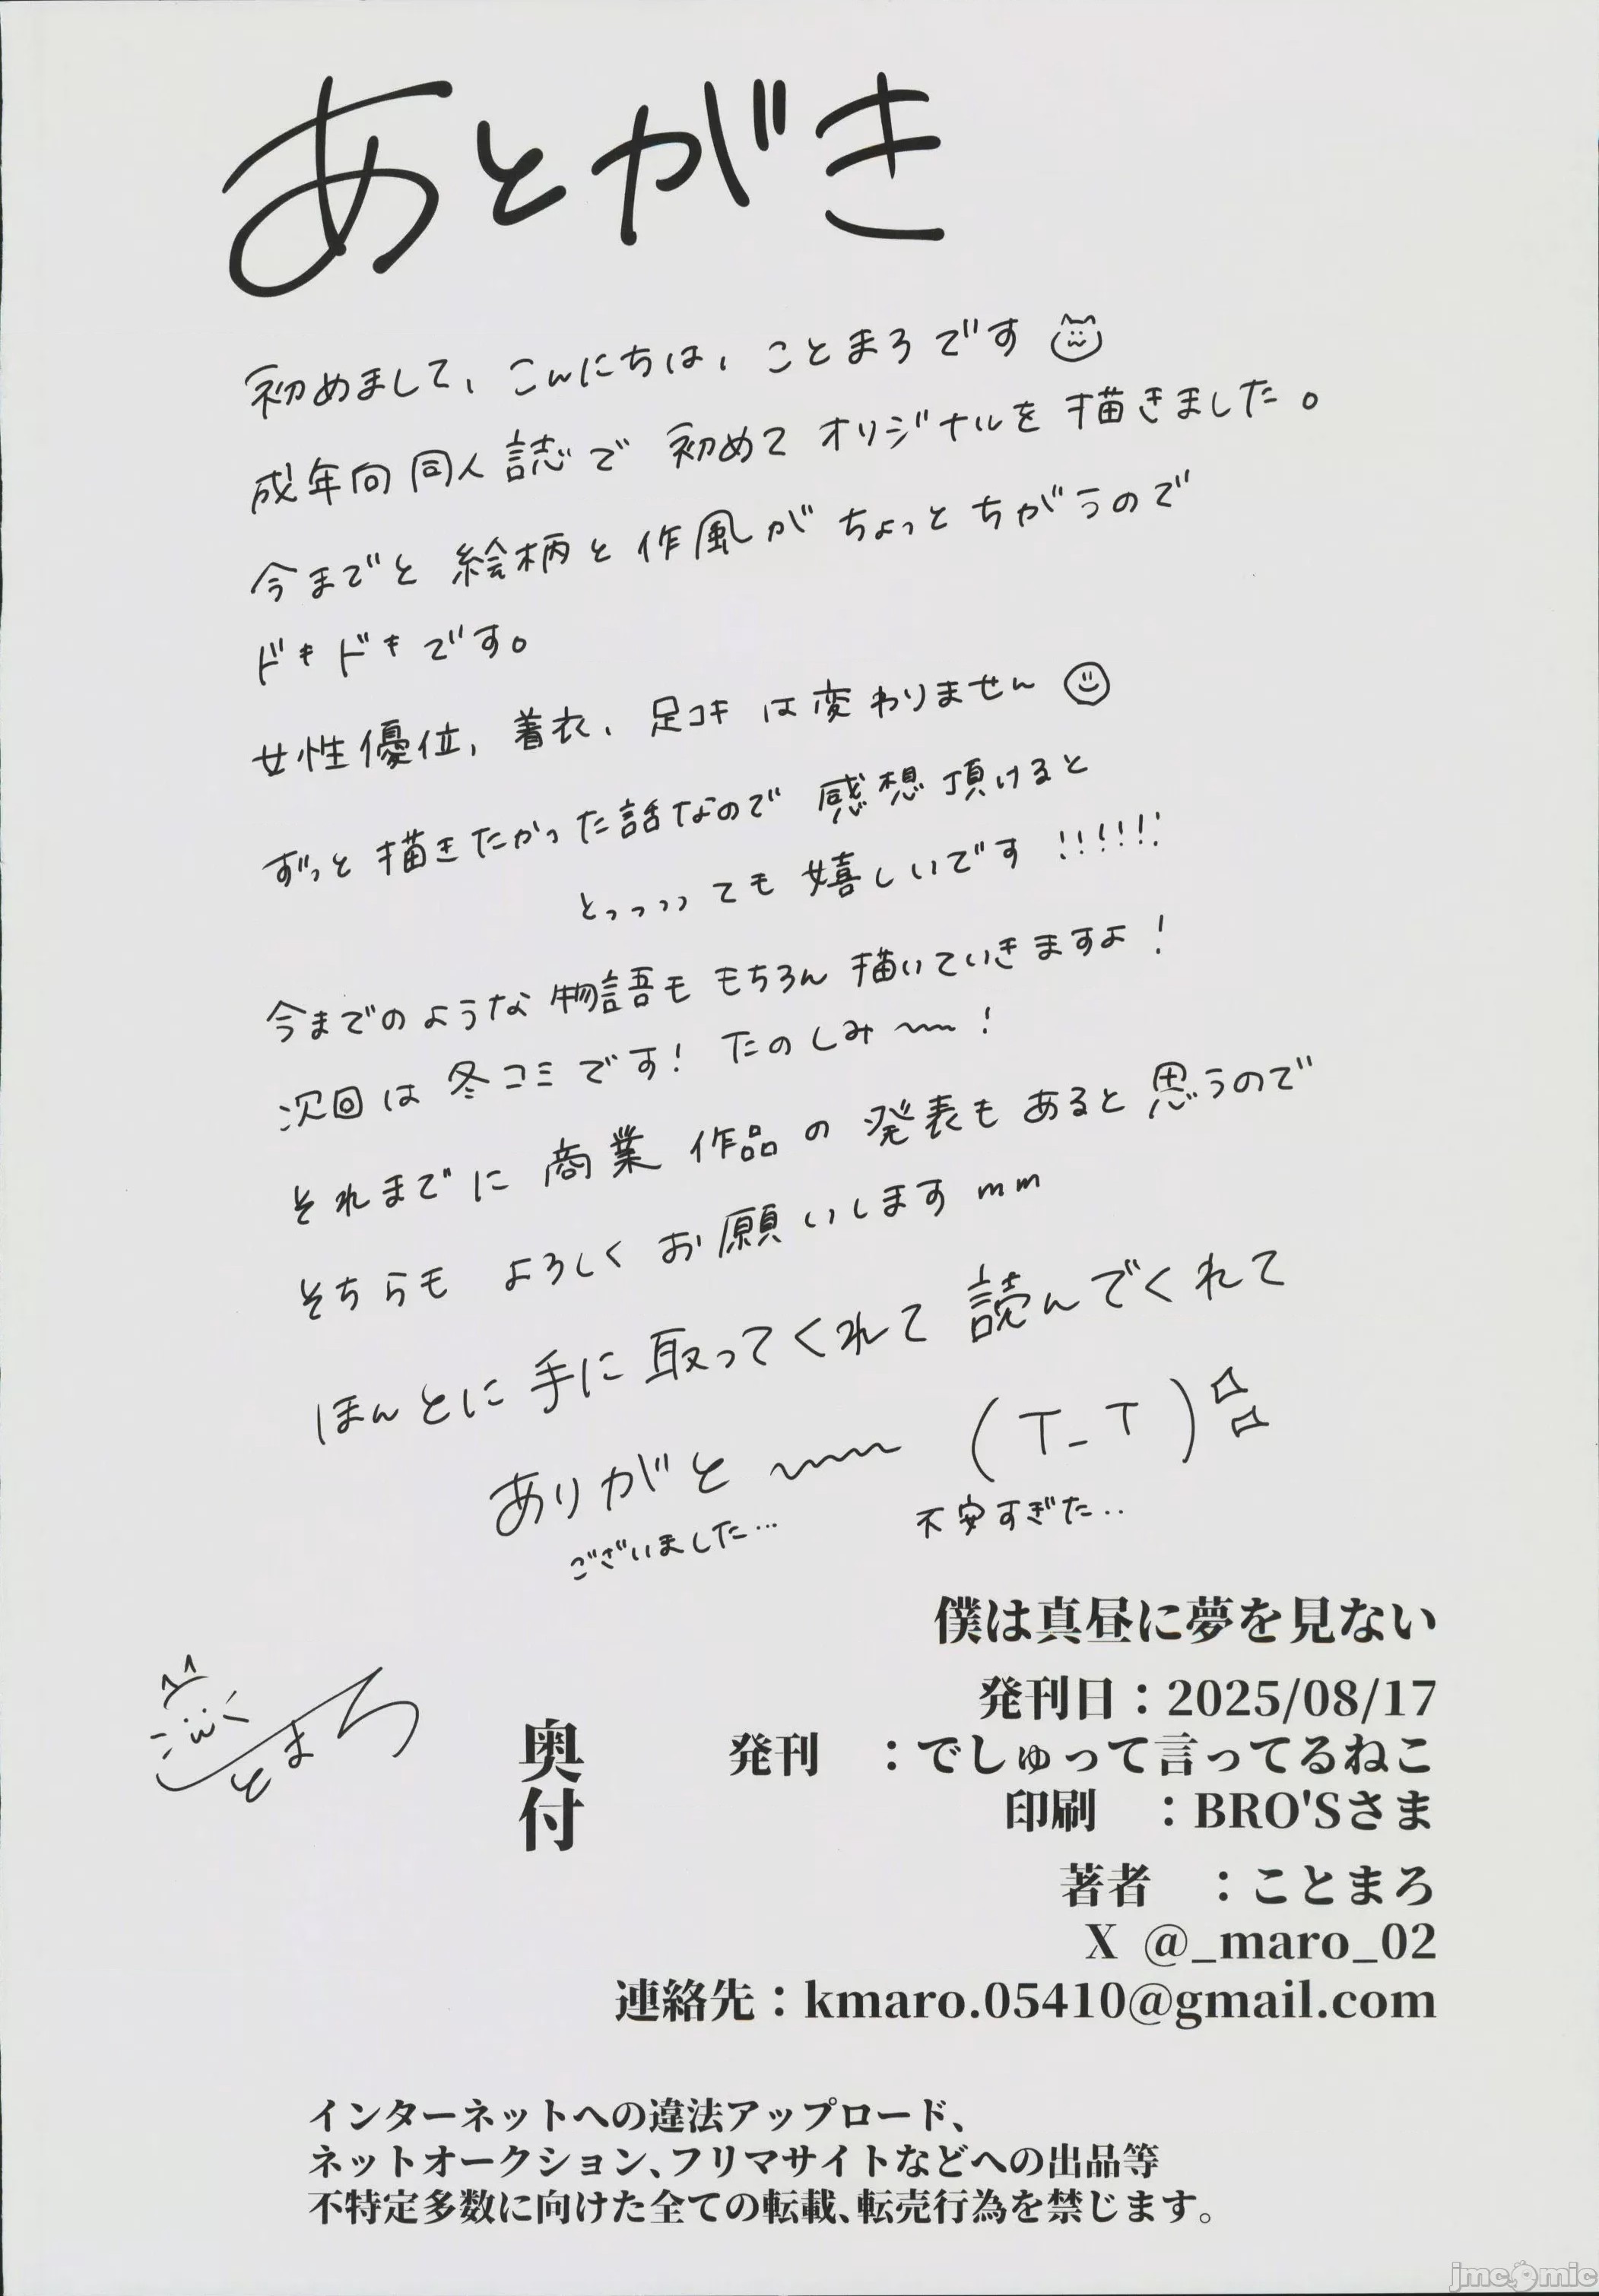 あとがき
初めまして、こんにちは、ことまろです
成年向同人誌で初めてオリジナルを描きました。
今までと絵柄と作風がちょっとちがうので
ドキドキです。
女性優位、着衣、足コキは変わりません
ずっと描きたかった話なので感想頂けると
とっっっっても嬉しいです!!!!!!
今までのような物語ももちろん描いていきますよ!
次回は冬コミです!たのしみ〜〜!
それまでに商業作品の発表もあると思うので
そちらもよろしくお願いしますmm
ほんとに手に取ってくれて読んでくれて
ありがと〜〜〜(T_T)
ございました…
不安すぎた‥
ことまろ
奥付
僕は真昼に夢を見ない
発刊日:2025/08/17
発刊 :でしゅって言ってるねこ
印刷 :BRO'Sさま
著者 :ことまろ
X @_maro_02
連絡先:kmaro.05410@gmail.com
インターネットへの違法アップロード、
ネットオークション、フリマサイトなどへの出品等
不特定多数に向けた全ての転載、転売行為を禁じます。
jmcomic